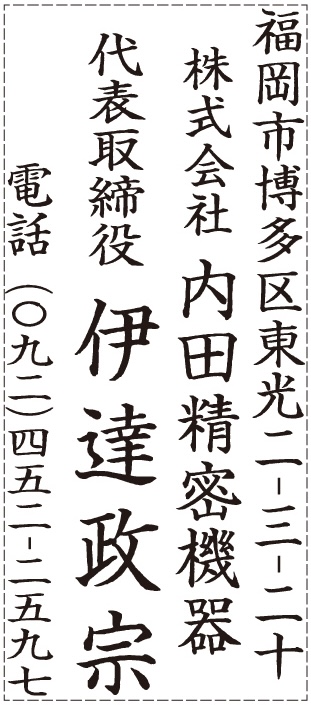 福岡市博多区東光二-三-二十
株式会社 内田精密機器
代表取締役 伊達政宗
電話 (〇九二)四五二-二五九七